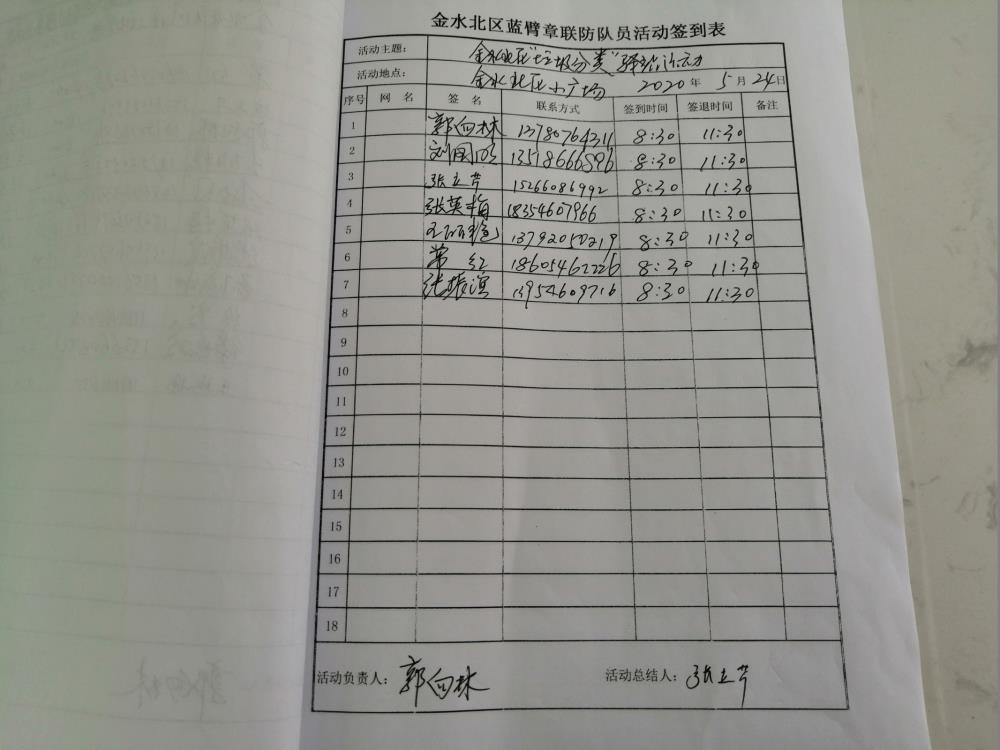 金水北区蓝臂章联防队员活动签到表
活动主题： 金水北区"垃圾分类"活动
活动地点： 金水北区小广场 2020年5月24日
序号 网名 签名 联系方式 签到时间 签退时间 备注
1 郭向林 13780764311 8:30 11:30
2 13518666596 8:30 11:30
3 张立芹 15266086992 8:30 11:30
4 张英梅 18354607966 8:30 11:30
5 13792050219 8:30 11:30
6 常红 18605462226 8:30 11:30
7 张振滨 13954609716 8:30 11:30
8
9
10
11
12
13
14
15
16
17
18
活动负责人：郭向林 活动总结人：张立芹
郭向林